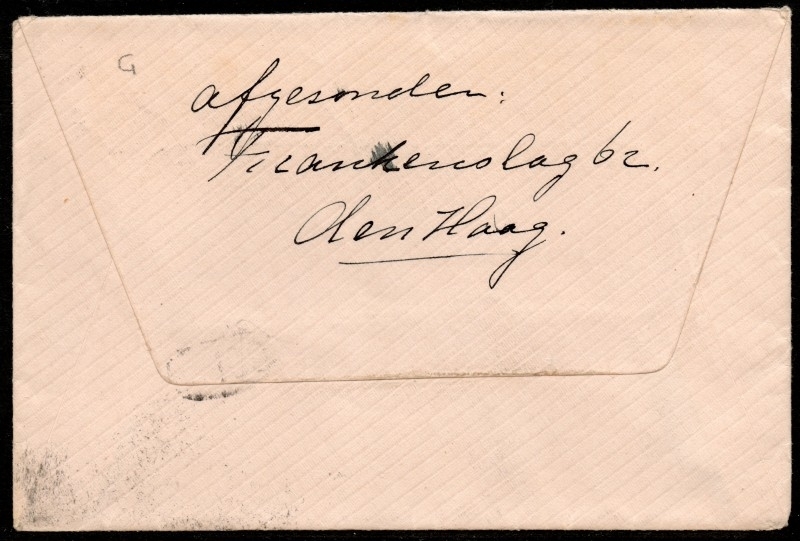 G
afgesonden:
Frankenslag 62.
den Haag.